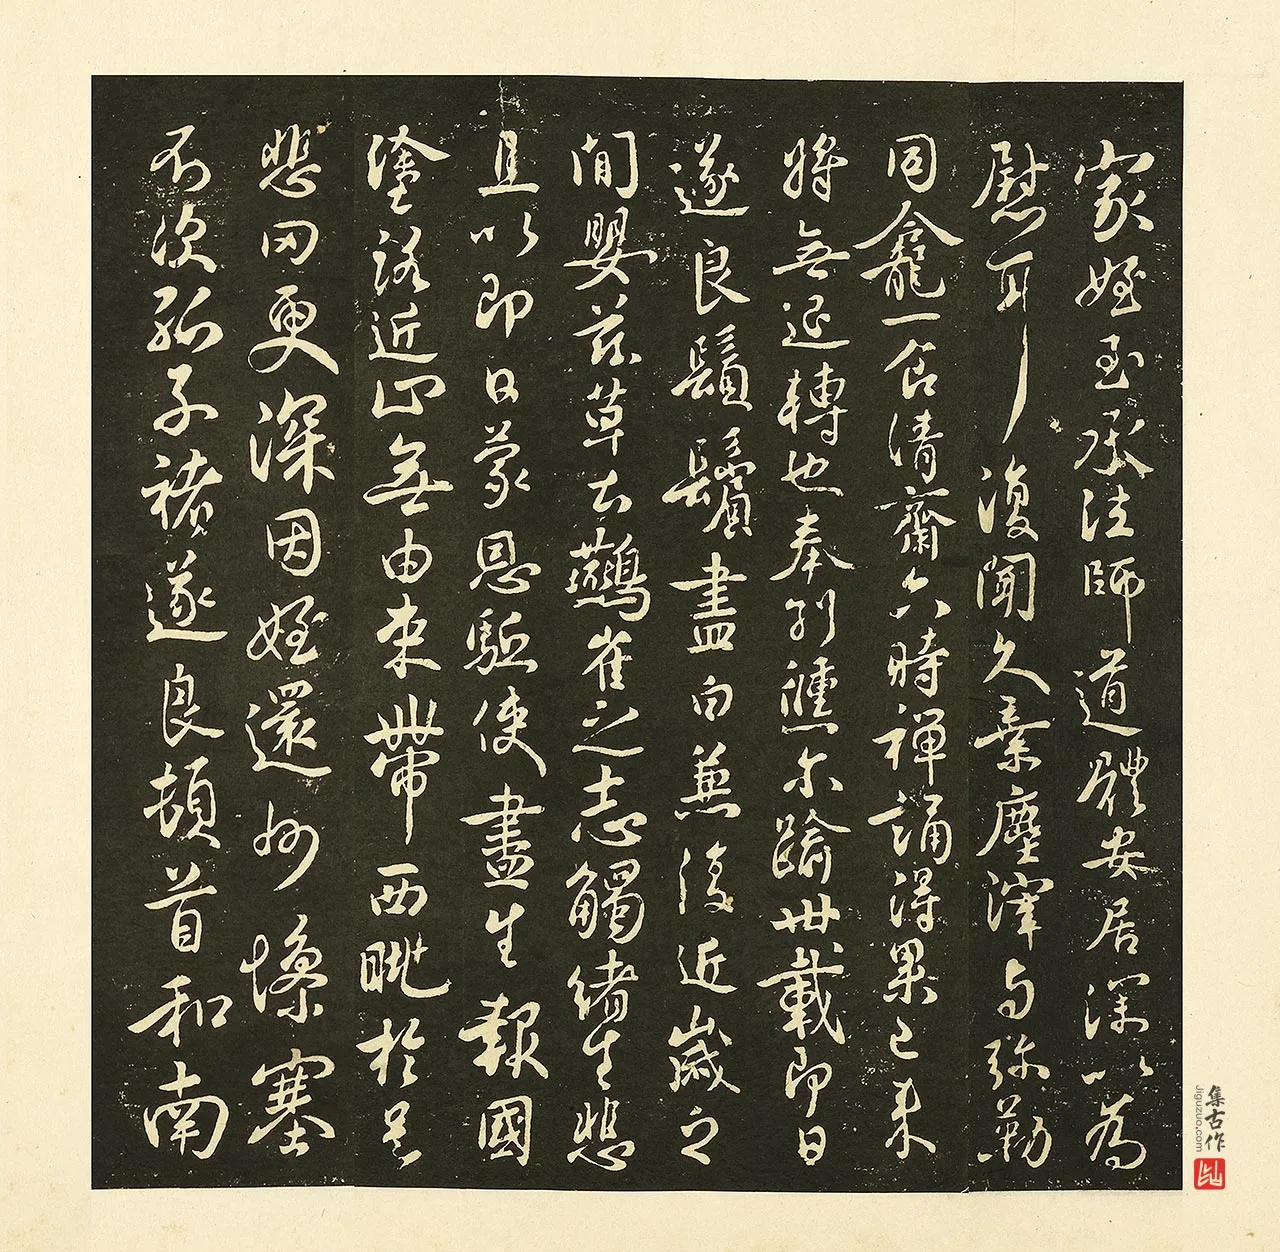 家姪至承法師道體安居深以為
慰耳復聞久棄塵滓与弥勒
同龕一食清齋六時禪誦得果已來
將無退轉也奉別儵尓踰卅載即日
遂良鬚鬢盡白兼復近歲之
間嬰茲草土鷰雀之志觸緒生悲
且以即日蒙恩駈使盡生報國
塗路近止無由束帶西眺於邑
悲罔更深因姪還州慘塞
不次孤子褚遂良頓首和南
集古作
Jiguzuo.com